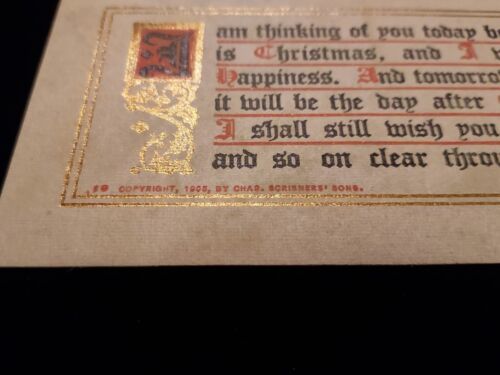 I am thinking of you today be
is Christmas, and I
Happiness. And tomorro
it will be the day after
I shall still wish you
and so on clear throu
COPYRIGHT, 1905, BY CHAS. SCRIBNERS' SONS.